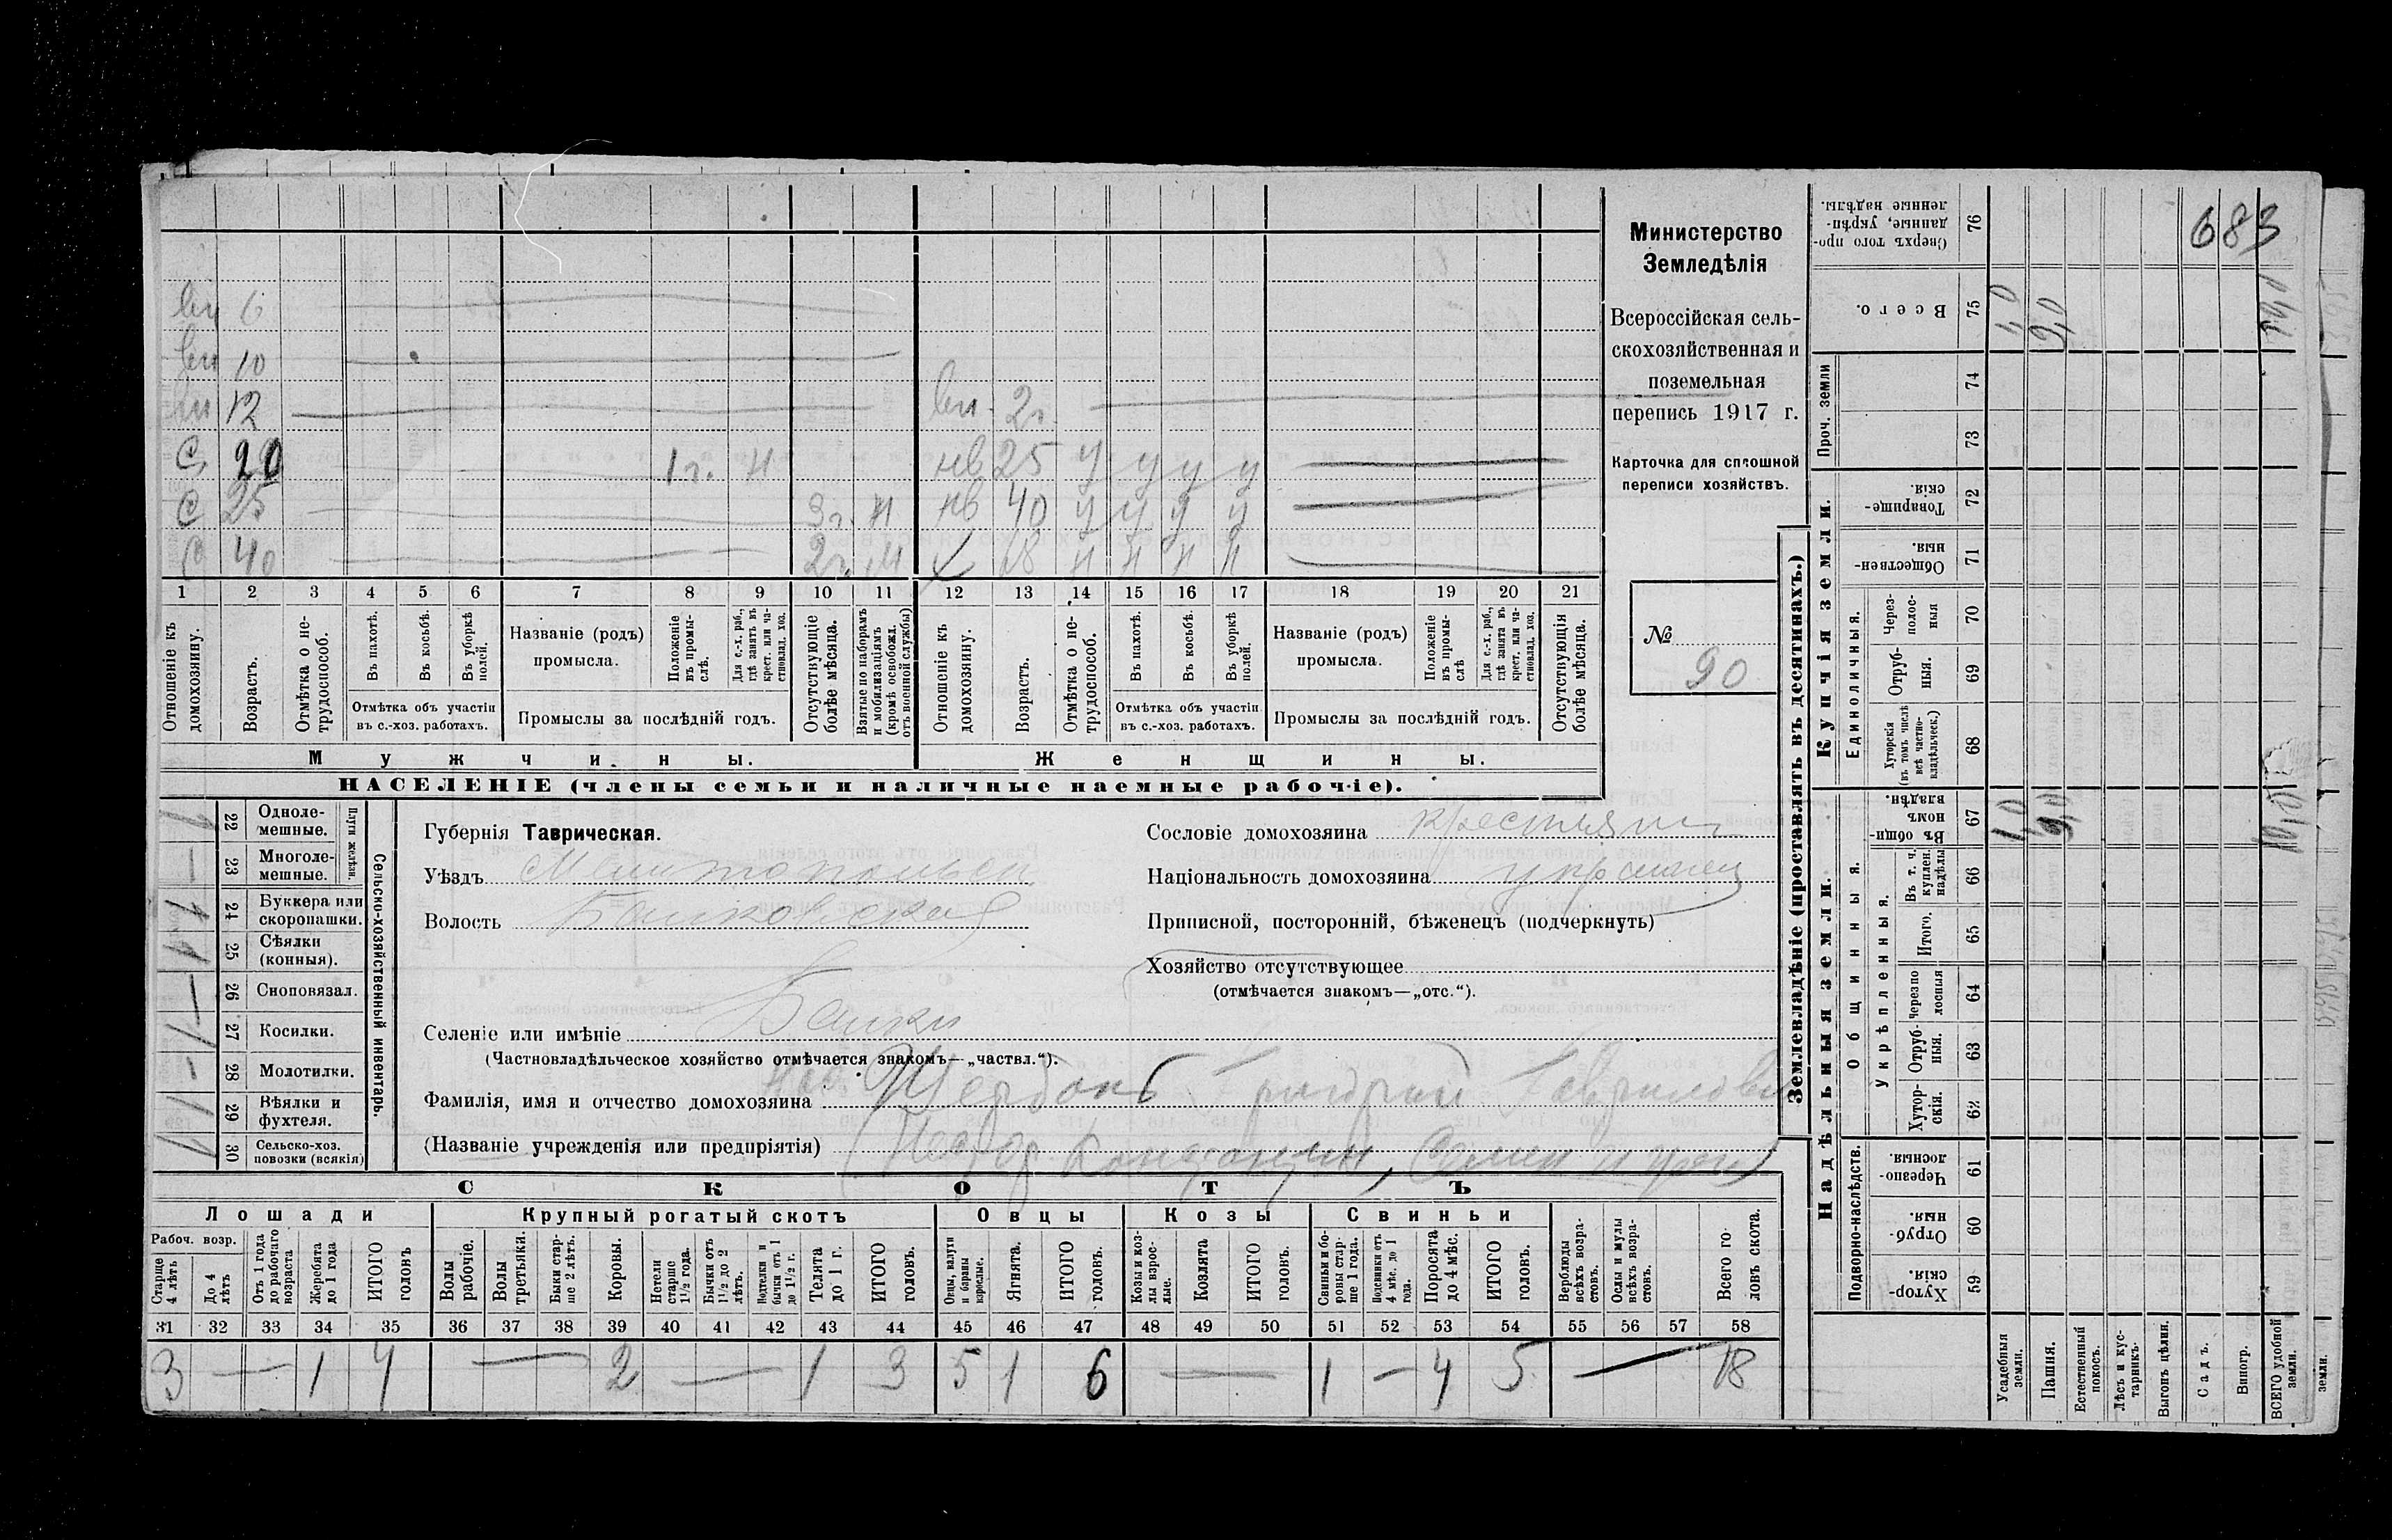 683
Министерство
Земледѣлія
Всероссійская сель-
скохозяйственная и
поземельная
перепись 1917 г.
Карточка для сплошной
переписи хозяйствъ.
№
90
6
10
12 2
С 20 1г. н нв 25 у у у у
С 25 3г. н нв 40 у у у у
С 40 2г. н
1 2 3 4 5 6 7 8 9 10 11 12 13 14 15 16 17 18 19 20 21
Отношеніе къ домохозяину.
Возрастъ.
Отмѣтка о не-трудоспособ.
Въ пахотѣ.
Въ косьбѣ.
Въ уборкѣ полей.
Отмѣтка объ участіи
въ с.-хоз. работахъ.
Названіе (родъ)
промысла.
Положеніе въ промы-слѣ.
Для с.-х. раб., гдѣ занятъ въ крест. или ча-стновлад. хоз.
Промыслы за послѣдній годъ.
Отсутствующіе болѣе мѣсяца.
Взятые по наборамъ и мобилизаціямъ (кромѣ освобожд. отъ военной службы)
Отношеніе къ домохозяину.
Возрастъ.
Отмѣтка о не-трудоспособ.
Въ пахотѣ.
Въ косьбѣ.
Въ уборкѣ полей.
Отмѣтка объ участіи
въ с.-хоз. работахъ.
Названіе (родъ)
промысла.
Положеніе въ промы-слѣ
Для с.-х. раб., гдѣ занята въ крест. или ча-стновлад. хоз.
Промыслы за послѣдній годъ.
Отсутствующія болѣе мѣсяца.
Мужчины. Женщины.
НАСЕЛЕНІЕ (члены семьи и наличные наемные рабочіе).
Сельско-хозяйственный инвентарь.
Плуги желѣзн.
22 Одноле-мешные.
23 Многоле-мешные.
24 Буккера или скоропашки.
25 Сѣялки (конныя).
26 Сноповязал.
27 Косилки.
28 Молотилки.
29 Вѣялки и фухтеля.
30 Сельско-хоз. повозки (всякія)
Губернія Таврическая.
Уѣздъ Мелитопольск
Волость Балковская
Селеніе или имѣніе Балки
(Частновладѣльческое хозяйство отмѣчается знакомъ—„частвл.“).
Фамилія, имя и отчество домохозяина Щербакъ Григорий Гаврилович
(Названіе учрежденія или предпріятія)
Сословіе домохозяина крестьянин
Національность домохозяина украинец
Приписной, посторонній, бѣженецъ (подчеркнуть)
Хозяйство отсутствующее
(отмѣчается знакомъ—„отс.“).
СКОТЪ
Лошади Крупный рогатый скотъ Овцы Козы Свиньи
Рабоч. возр.
Старше 4 лѣтъ
До 4 лѣтъ
Отъ 1 года до рабочаго возраста
Жеребята до 1 года
ИТОГО головъ
Волы рабочіе.
Волы третьяки.
Быки стар-ше 2 лѣтъ.
Коровы.
Нетели старше 1½ года.
Бычки отъ 1½ до 2 лѣтъ.
Подтелки и бычки отъ 1 до 1½ г.
Телята до 1 г.
ИТОГО головъ.
Овцы, валухи и бараны взрослые.
Ягнята.
ИТОГО головъ.
Козы и коз-лы взрос-лые.
Козлята
ИТОГО головъ.
Свиньи и бо-ровы стар-ше 1 года.
Подсвинки отъ 4 мѣс. до 1 года.
Поросята до 4 мѣс.
ИТОГО головъ.
Верблюды всѣхъ возра-стовъ.
Ослы и мулы всѣхъ возра-стовъ.
Всего го-ловъ скота.
31 32 33 34 35 36 37 38 39 40 41 42 43 44 45 46 47 48 49 50 51 52 53 54 55 56 57 58
3 — 1 4 — 2 — 1 3 5 1 6 — 1 — 4 5 — 18
Землевладѣніе (проставлять въ десятинахъ.)
Купчія земли.
Надѣльныя земли.
Сверхъ того про-данные, укрѣп-ленные надѣлы. 76
Всего. 75 1,0 9,0
Проч. земли 74 73
Товарище-скія. 72
Обществен-ныя. 71
Единоличныя.
Через-полос-ныя 70
Отруб-ныя. 69
Хуторскія (въ томъ числѣ всѣ частно-владѣльческ.) 68
Общинныя.
Въ общи-номъ владѣн. 67 1,0 9,0
Укрѣпленныя.
Въ т. ч. куплен. надѣлы 66
Итого. 65
Черезпо-лосныя 64
Отруб-ныя. 63
Хутор-скія. 62
Подворно-наслѣдств.
Черезпо-лосныя. 61
Отруб-ныя. 60
Хутор-скія. 59
Усадебныя земли.
Пашня.
Естественный покосъ.
Лѣсъ и кус-тарникъ.
Выгонъ цѣлин.
Садъ.
Виногр.
ВСЕГО удобной земли.
земли.